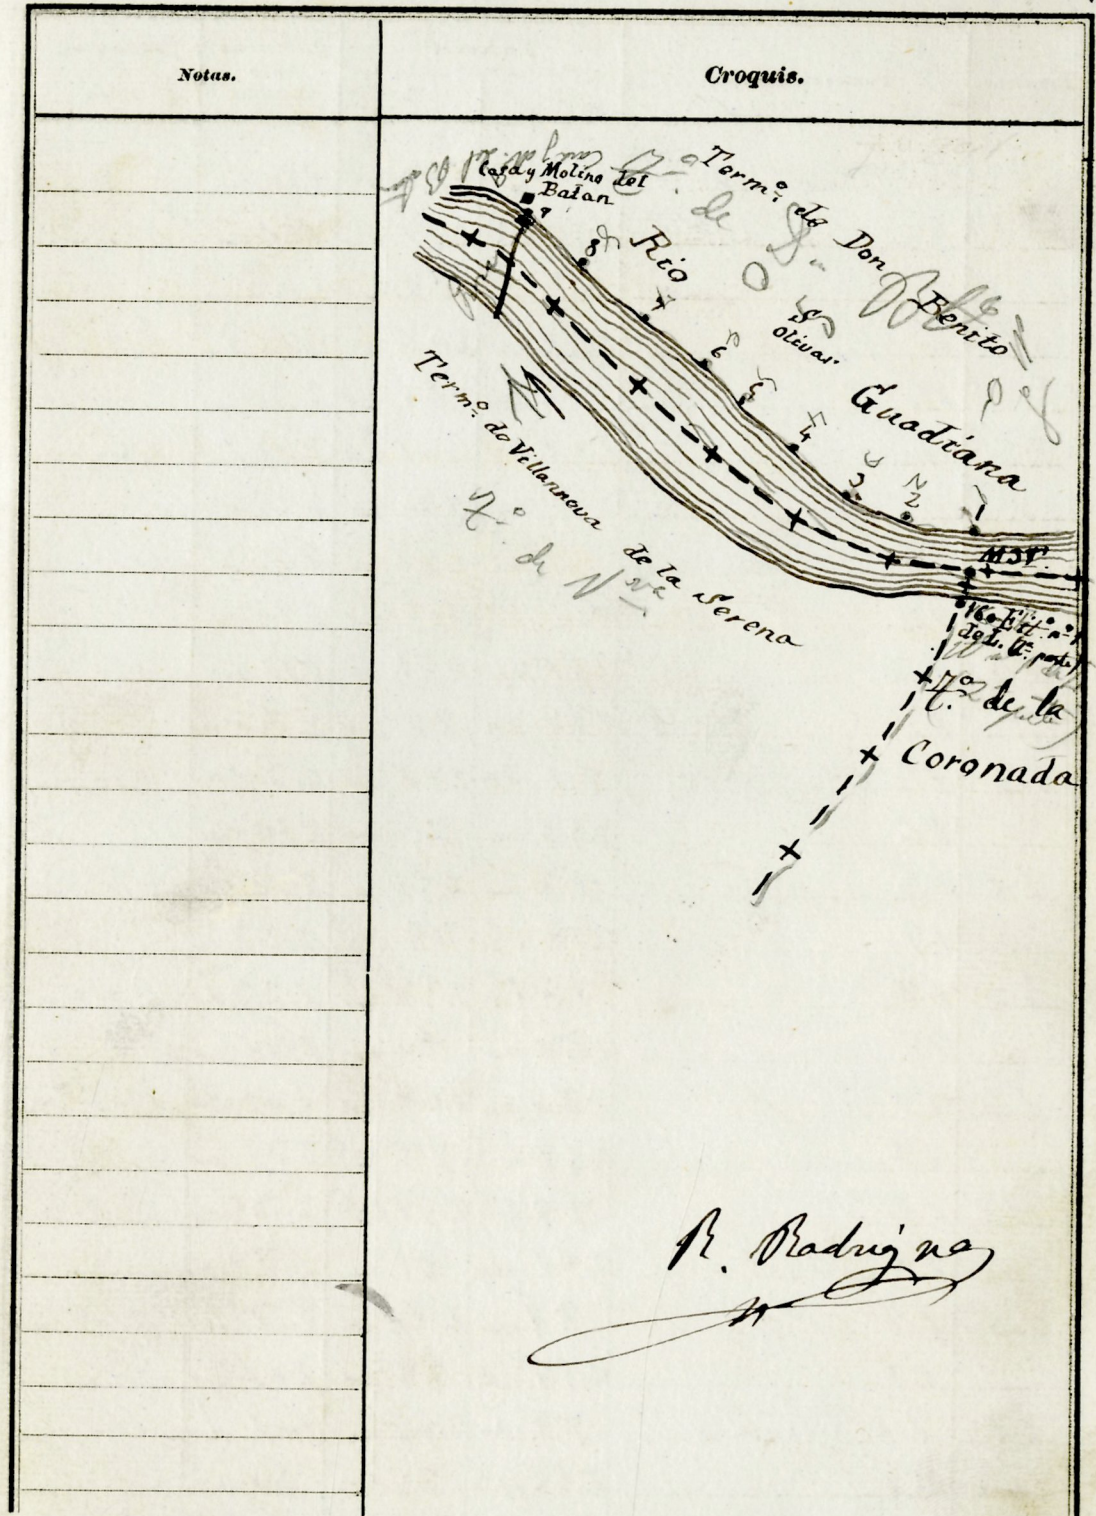 Notas.
Croquis.
Casa y Molino del
Batan
Term.º de Don Benito
Rio Guadiana
Olivar
9
8
7
6
5
4
3
2
1
Term.º de Villanueva de la Serena
M3T.
T.º de la
Coronada
R. Rodríguez